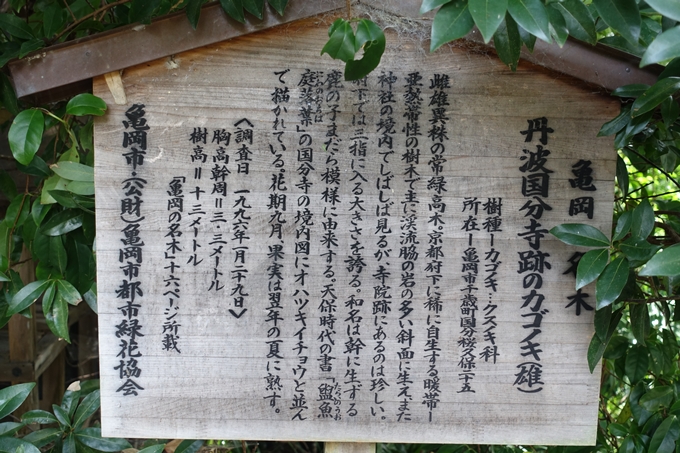 亀岡 名木
丹波国分寺跡のカゴノキ(雄)
樹種―カゴノキ…クスノキ科
所在―亀岡市千歳町国分桜久保二十五
雌雄異株の常緑高木。京都府下に稀に自生する暖帯―
亜熱帯性の樹木で主に渓流脇の岩の多い斜面に生え、また
神社の境内でしばしば見るが、寺院跡にあるのは珍しい。
府下では三指に入る大きさを誇る。和名は幹に生ずる
鹿の子まだら模様に由来する。天保時代の書「盥魚
たらいのうお
庭落葉」の国分寺の境内図にオハツキイチョウと並ん
にわのおちば
で描かれている。花期九月、果実は翌年の夏に熟す。
〈調査日 一九九六年一月二十九日〉
胸高幹周=三・三メートル
樹高=十三メートル
「亀岡の名木」十六ページ所載
亀岡市・(公財)亀岡市都市緑花協会